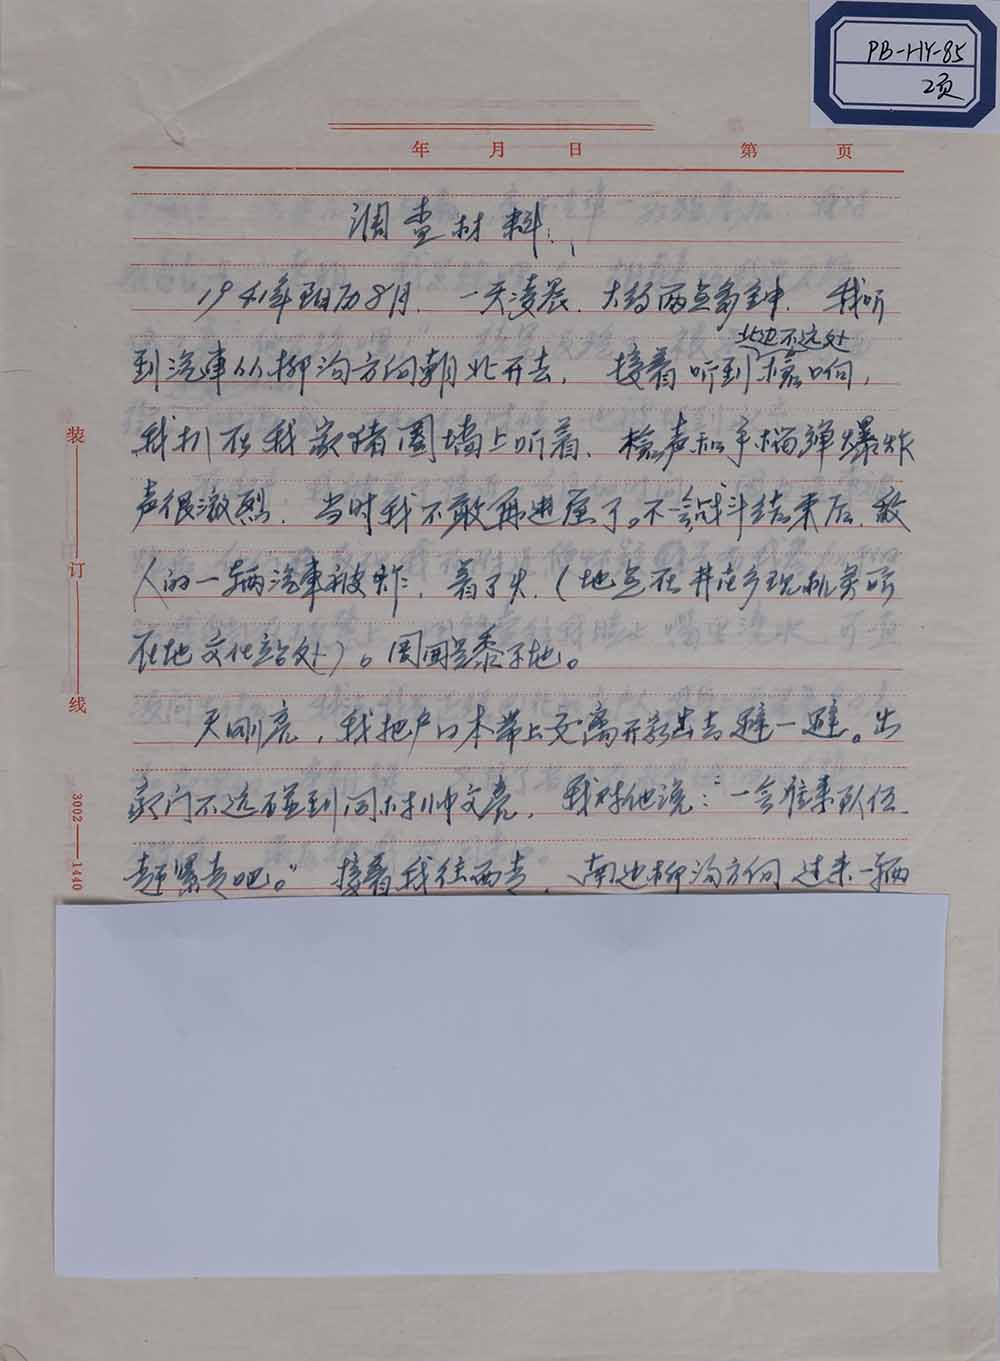 PB-HY-85
2页
年 月 日 第 页
调查材料：
1941年阳历8月，一天凌晨，大约两点多钟，我听
北边不远处
到汽車从柳沟方向朝北开去，接着听到槍响，
我扒在我家猪圈墙上听着，槍声和手榴弹爆炸
声很激烈，当时我不敢再进屋了。不一会战斗结束后，敌
人的一辆汽車被炸，着了火，（地点在井庄乡现机关所
在地文化站处）。周围是黍子地。
天刚亮，我把户口本带上要离开家出去避一避。出
家门不远碰到同村帅文亮，我对他说：“一会准来队伍
赶紧走吧。”接着我往西走，南边柳沟方向过来一辆
装
订
线
3002—1440